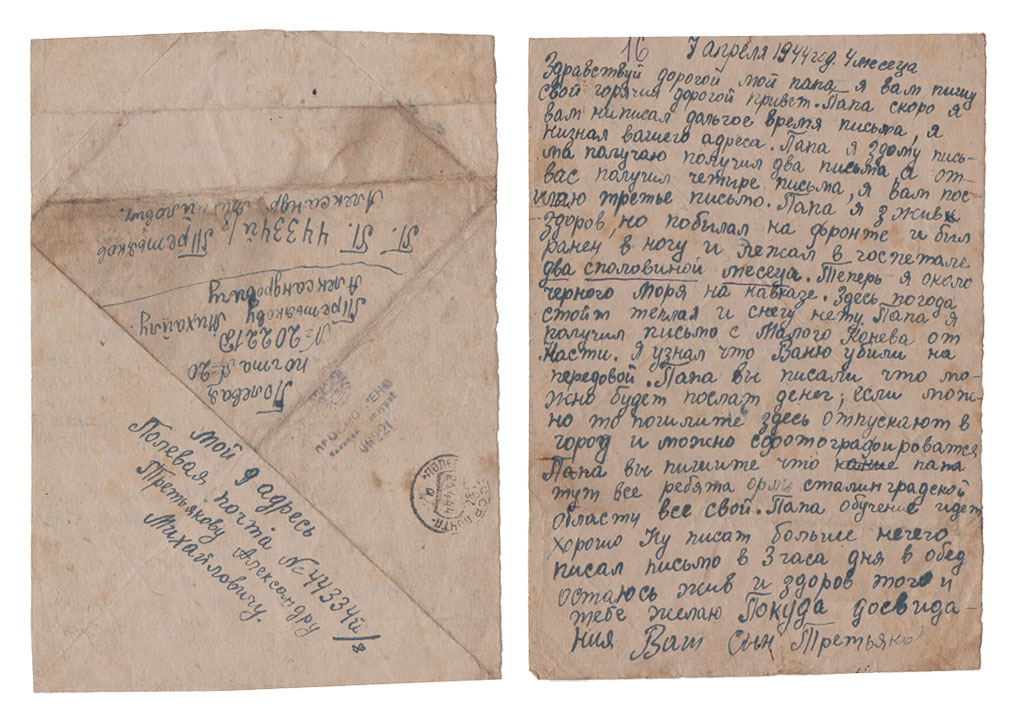 Александр Михайлович.
П. П. 44334й/8 Третьяков
Александровичу
Третьякову Михаилу.
№ 20221В
почта № 20
Полевая
06221
Мой адресъ
Полевая почта № 44334й/8
Третьякову Александру
Михайловичу.
16 7 апреля 1944 год. 4 месеца
Здравствуй дорогой мой папа я вам пишу
свой горячий дорогой привет. Папа скоро я
вам ниписал дальгое время письма, я
низнал вашего адреса. Папа я здому пись-
ма получаю получил два письма, а от-
вас получил четире письма, я вам пос-
илаю третье письмо. Папа я жив
здоров, но побылал на фронте и был
ранен в ногу и лежал в госпетале
два споловиной месеца. Теперь я около
черного моря на кавказе. Здесь погода
стоит теплая и снегу нету. Папа я
получил письмо с Малого Конева от
Насти. Я узнал что Ваню убили на
передовой. Папа вы писали что мо-
жно будет послат денег, если мож-
но то пошлите здесь отпускают в
город и можно сфотографироватся
Папа вы пишите что какие папа
тут все ребята орлы сталинградской
област все свои. Папа обучение идет
хорошо Ну писат больше нечего
писал письмо в 3 часа дня в обед
остаюсь жив и здоров того и
тебе желаю Покуда досвида-
ния Ваш Сын Третьяков